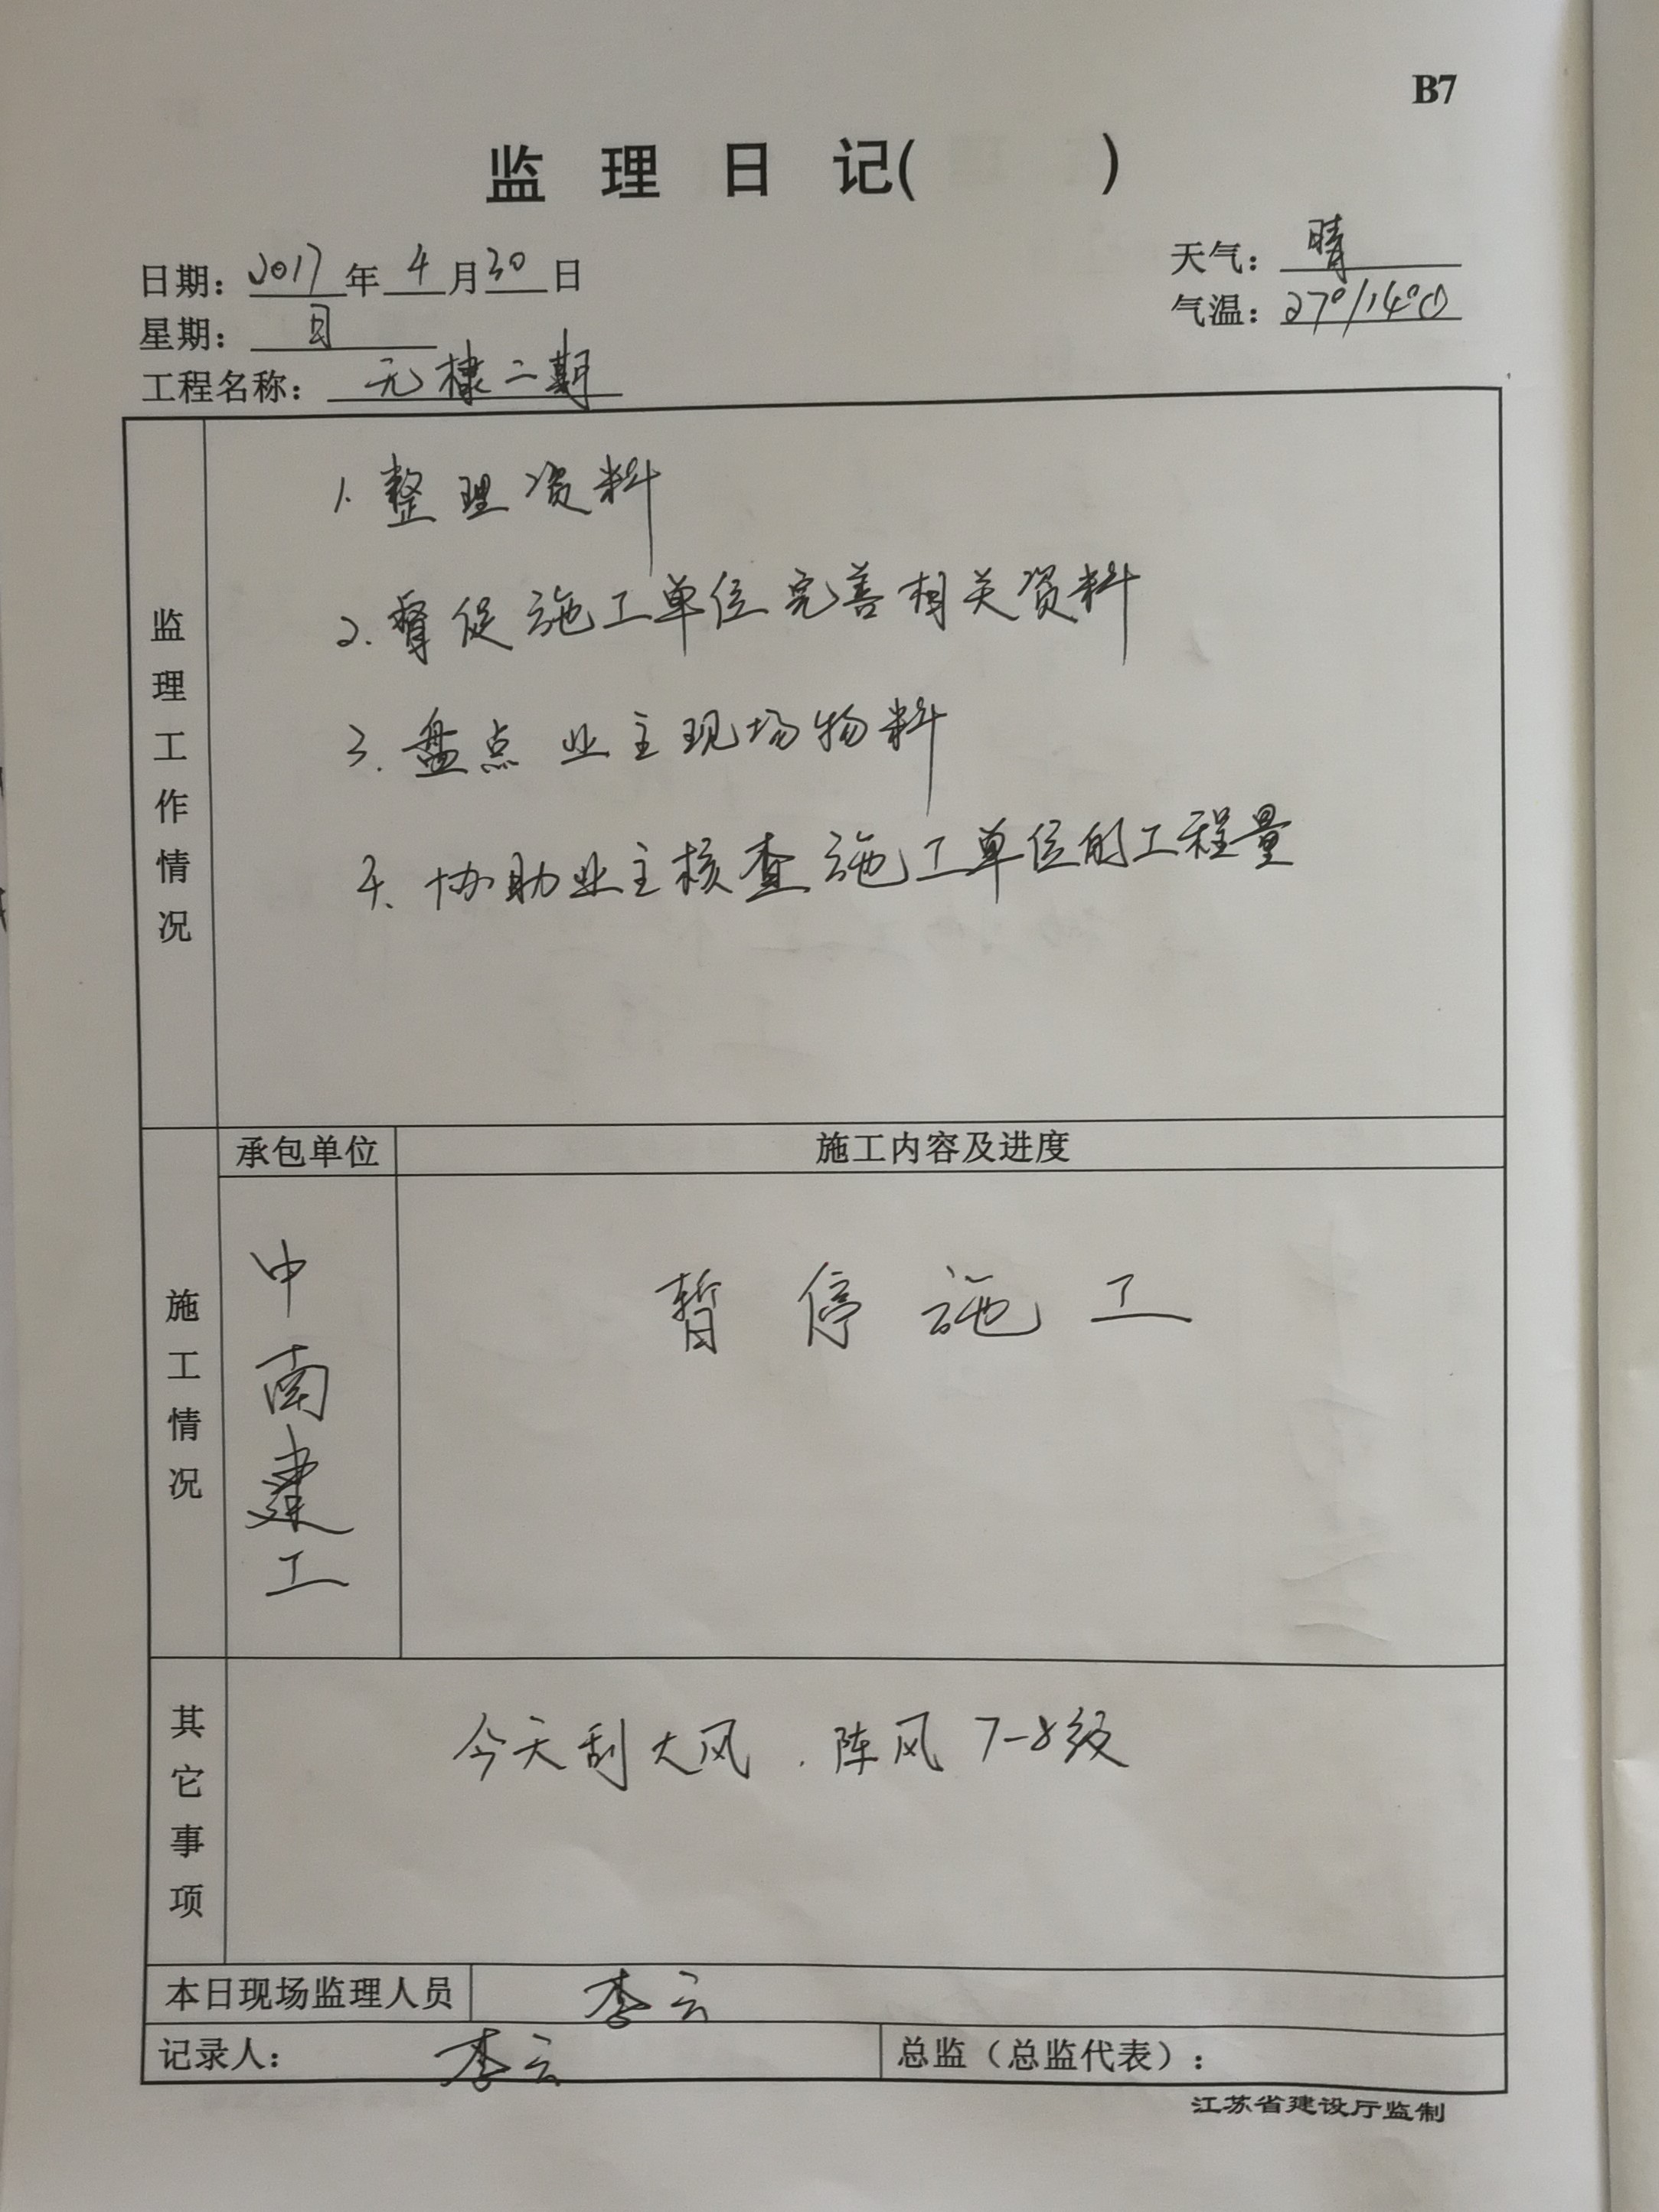 B7
监理日记(    )
日期: 2017年4月30日
天气: 晴
星期: 日
气温: 27°/14°C
工程名称: 无棣二期
监理工作情况
1. 整理资料
2. 督促施工单位完善相关资料
3. 盘点业主现场物料
4. 协助业主核查施工单位的工程量
施工情况
承包单位 施工内容及进度
中南建工
暂停施工
其它事项
今天刮大风，阵风7-8级
本日现场监理人员 李云
记录人: 李云 总监（总监代表）:
江苏省建设厅监制